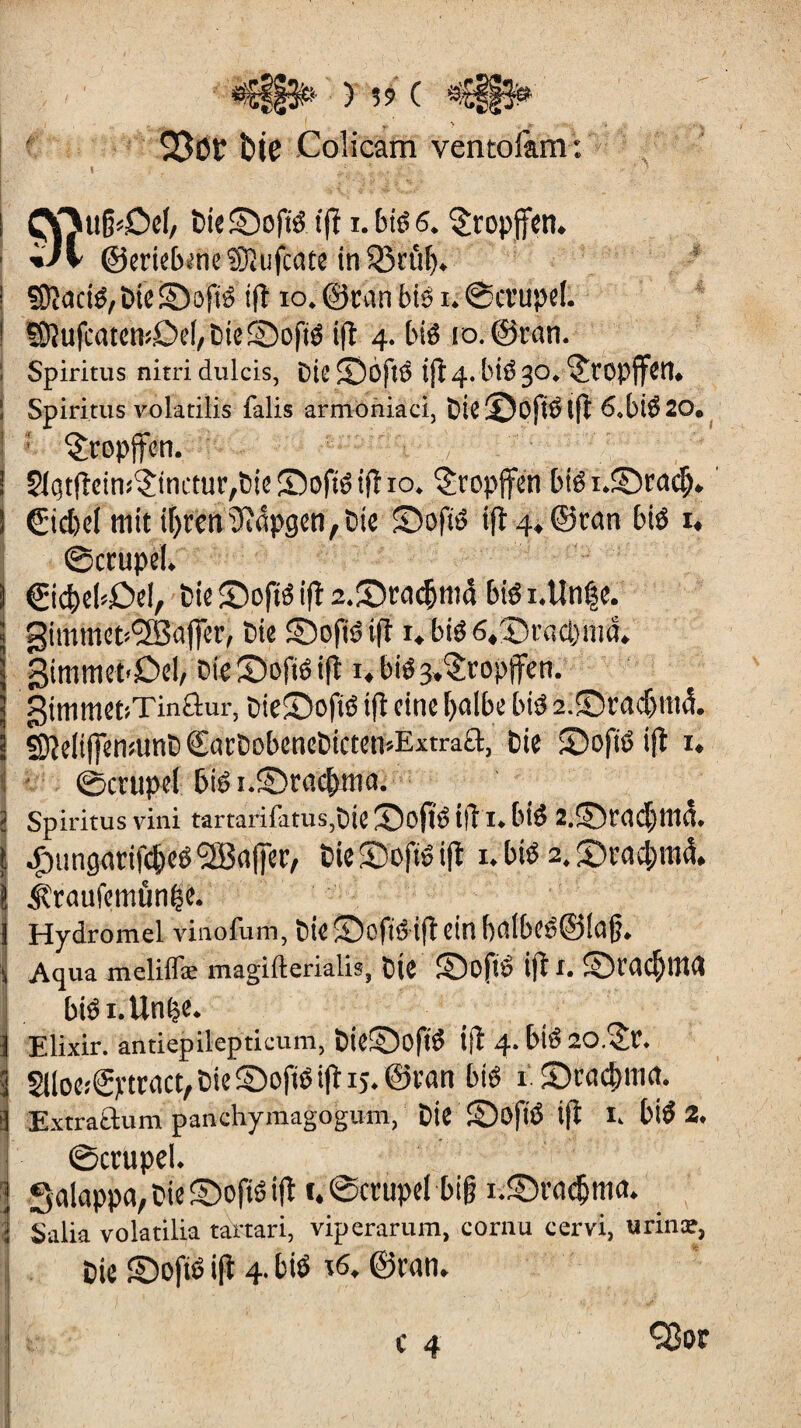 ) 39 (
Vor die Colicam ventosam:
Nuß-Oel, die Dosis ist 1. bis 6. Tropffen.
Geriebene Muscate in Brüh.
Macis, die Dosis ist 10. Gran bis 1. Scrupel.
Muscaten-Oel, die Dosis ist 4. bis 10. Gran.
Spiritus nitri dulcis, die Dosis ist 4. bis 30. Tropffen.
Spiritus volatilis salis armoniaci, die Dosis ist 6. bis 20.
Tropffen.
Agtstein-Tinctur, die Dosis ist 10. Tropffen bis 1. Drach.
Eichel mit ihren Näpgen, die Dosis ist 4. Gran bis 1.
Scrupel.
Eichel-Oel, die Dosis ist 2. Drachmä bis 1. Untze.
Zimmet-Wasser, die Dosis ist 1. bis 6. Drachmä.
Zimmet-Oel, die Dosis ist 1. bis 3. Tropffen.
Zimmet-Tinctur, die Dosis ist eine halbe bis 2. Drachmä.
Melissen- und Cardobenedicten-Extract, die Dosis ist 1.
Scrupel bis 1. Drachma.
Spiritus vini tartarisatus, die Dosis ist 1. bis 2. Drachmä.
Hungarisches Wasser, die Dosis ist 1. bis 2. Drachmä.
Krausemüntze.
Hydromel vinosum, die Dosis ist ein halbes Glaß.
Aqua melissæ magisterialis, die Dosis ist 1. Drachma
bis 1. Untze.
Elixir. antiepilepticum, die Dosis ist 4. bis 20. Tr.
Aloe-Extract, die Dosis ist 15. Gran bis 1. Drachma.
Extractum panchymagogum, die Dosis ist 1. bis 2.
Scrupel.
Jalappa, die Dosis ist 1. Scrupel biß 1. Drachma.
Salia volatilia tartari, viperarum, cornu cervi, urinæ,
die Dosis ist 4. bis 16. Gran.
c 4 Vor